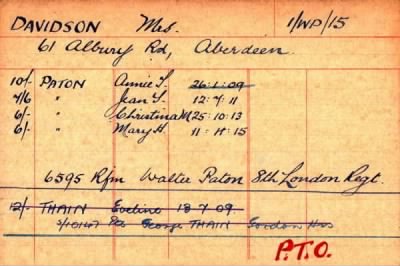 DAVIDSON Mrs. 1/WP/15
61 Albury Rd, Aberdeen.
10/- PATON Annie T. 26:1:09
7/6 " Jean T. 12:7:11
6/- " Christina M. 25:10:13
6/- " Mary H. 11:11:15
6595 Rfm Walter Paton 8th London Regt.
12/- THAIN Eveline 13 7 09.
S/10147 Pte George THAIN Gordon Hrs
P.T.O.